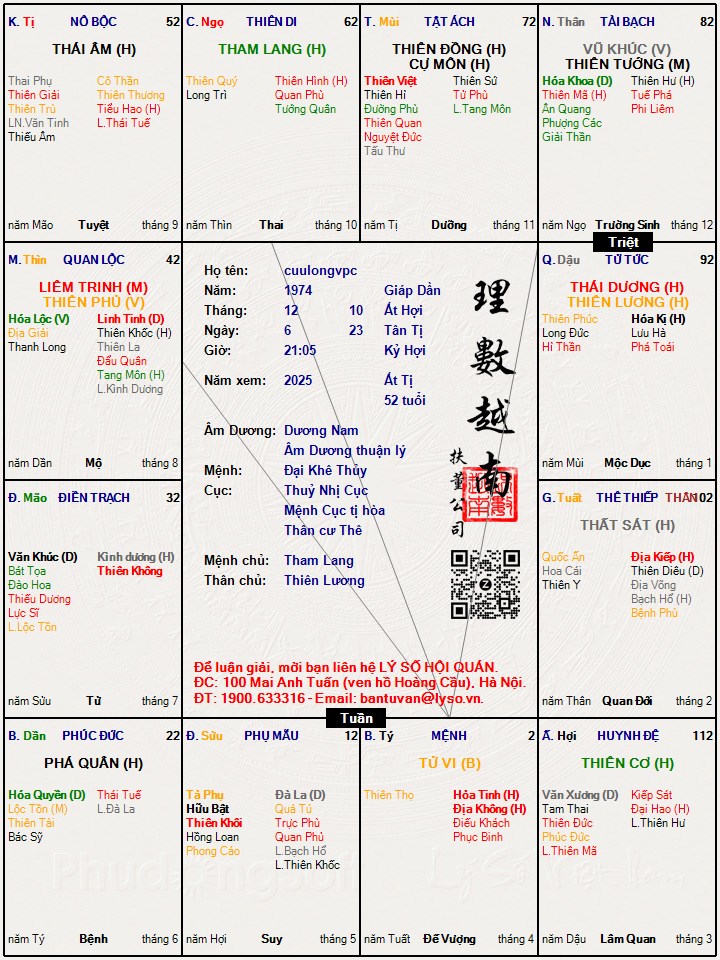 K. Tị NÔ BỘC 52
THÁI ÂM (H)
Thai Phụ Cô Thần
Thiên Giải Thiên Thương
Thiên Trù Tiểu Hao (H)
LN.Văn Tinh L.Thái Tuế
Thiếu Âm
năm Mão Tuyệt tháng 9
C. Ngọ THIÊN DI 62
THAM LANG (H)
Thiên Quý Thiên Hình (H)
Long Trì Quan Phù
Tướng Quân
năm Thìn Thai tháng 10
T. Mùi TẬT ÁCH 72
THIÊN ĐỒNG (H)
CỰ MÔN (H)
Thiên Việt Thiên Sứ
Thiên Hỉ Tử Phù
Đường Phù L.Tang Môn
Thiên Quan
Nguyệt Đức
Tấu Thư
năm Tị Dưỡng tháng 11
N. Thân TÀI BẠCH 82
VŨ KHÚC (V)
THIÊN TƯỚNG (M)
Hóa Khoa (D) Thiên Hư (H)
Thiên Mã (H) Tuế Phá
Ân Quang Phi Liêm
Phượng Các
Giải Thần
năm Ngọ Trường Sinh tháng 12
Triệt
M. Thìn QUAN LỘC 42
LIÊM TRINH (M)
THIÊN PHỦ (V)
Hóa Lộc (V) Linh Tinh (D)
Địa Giải Thiên Khốc (H)
Thanh Long Thiên La
Đẩu Quân
Tang Môn (H)
L.Kình Dương
năm Dần Mộ tháng 8
Họ tên: cuulongvpc
Năm: 1974 Giáp Dần
Tháng: 12 10 Ất Hợi
Ngày: 6 23 Tân Tị
Giờ: 21:05 Kỷ Hợi
Năm xem: 2025 Ất Tị
52 tuổi
Âm Dương: Dương Nam
Âm Dương thuận lý
Mệnh: Đại Khê Thủy
Cục: Thuỷ Nhị Cục
Mệnh Cục tị hòa
Thân cư Thê
Mệnh chủ: Tham Lang
Thân chủ: Thiên Lương
理數越南
扶董公司
Để luận giải, mời bạn liên hệ LÝ SỐ HỘI QUÁN.
ĐC: 100 Mai Anh Tuấn (ven hồ Hoàng Cầu), Hà Nội.
ĐT: 1900.633316 - Email: bantuvan@lyso.vn.
Q. Dậu TỬ TỨC 92
THÁI DƯƠNG (H)
THIÊN LƯƠNG (H)
Thiên Phúc Hóa Kị (H)
Long Đức Lưu Hà
Hỉ Thần Phá Toái
năm Mùi Mộc Dục tháng 1
Đ. Mão ĐIỀN TRẠCH 32
Văn Khúc (D) Kình dương (H)
Bát Tọa Thiên Không
Đào Hoa
Thiếu Dương
Lực Sĩ
L.Lộc Tồn
năm Sửu Tử tháng 7
G. Tuất THÊ THIẾP THÂN 102
THẤT SÁT (H)
Quốc Ấn Địa Kiếp (H)
Hoa Cái Thiên Diêu (D)
Thiên Y Địa Võng
Bạch Hổ (H)
Bệnh Phù
năm Thân Quan Đới tháng 2
Tuần
B. Dần PHÚC ĐỨC 22
PHÁ QUÂN (H)
Hóa Quyền (D) Thái Tuế
Lộc Tồn (M) L.Đà La
Thiên Tài
Bác Sỹ
năm Tý Bệnh tháng 6
Đ. Sửu PHỤ MẪU 12
Tả Phụ Đà La (D)
Hữu Bật Quả Tú
Thiên Khôi Trực Phù
Hồng Loan Quan Phủ
Phong Cáo L.Bạch Hổ
L.Thiên Khốc
năm Hợi Suy tháng 5
B. Tý MỆNH 2
TỬ VI (B)
Thiên Thọ Hỏa Tinh (H)
Địa Không (H)
Điếu Khách
Phục Binh
năm Tuất Đế Vượng tháng 4
Ấ. Hợi HUYNH ĐỆ 112
THIÊN CƠ (H)
Văn Xương (D) Kiếp Sát
Tam Thai Đại Hao (H)
Thiên Đức L.Thiên Hư
Phúc Đức
L.Thiên Mã
năm Dậu Lâm Quan tháng 3